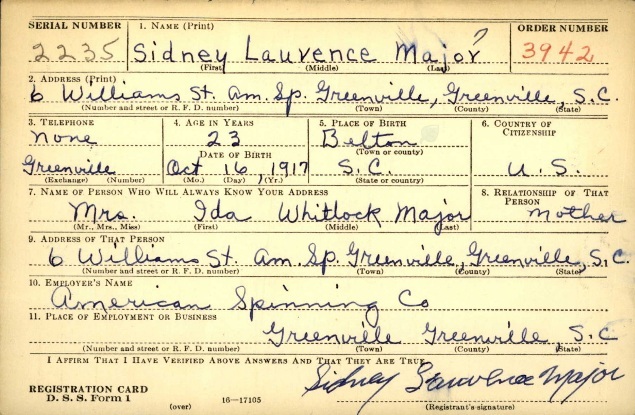 SERIAL NUMBER 1. NAME (Print) ORDER NUMBER
2235 Sidney Laurence Major 3942
(First) (Middle) (Last)
2. ADDRESS (Print)
6 Williams St. Am. Sp. Greenville, Greenville, S.C.
(Number and street or R. F. D. number) (Town) (County) (State)
3. TELEPHONE 4. AGE IN YEARS 5. PLACE OF BIRTH 6. COUNTRY OF CITIZENSHIP
None 23 Belton
DATE OF BIRTH (Town or county)
Greenville Oct 16, 1917 S.C. U.S.
(Exchange) (Number) (Mo.) (Day) (Yr.) (State or country)
7. NAME OF PERSON WHO WILL ALWAYS KNOW YOUR ADDRESS 8. RELATIONSHIP OF THAT PERSON
Mrs. Ida Whitlock Major Mother
(Mr., Mrs., Miss) (First) (Middle) (Last)
9. ADDRESS OF THAT PERSON
6 Williams St. Am. Sp. Greenville, Greenville, S.C.
(Number and street or R. F. D. number) (Town) (County) (State)
10. EMPLOYER'S NAME
American Spinning Co
11. PLACE OF EMPLOYMENT OR BUSINESS
Greenville Greenville, S.C
(Number and street or R. F. D. number) (Town) (County) (State)
I AFFIRM THAT I HAVE VERIFIED ABOVE ANSWERS AND THAT THEY ARE TRUE.
Sidney Lawrence Major
REGISTRATION CARD
D. S. S. Form 1 (over) 16—17105 (Registrant's signature)